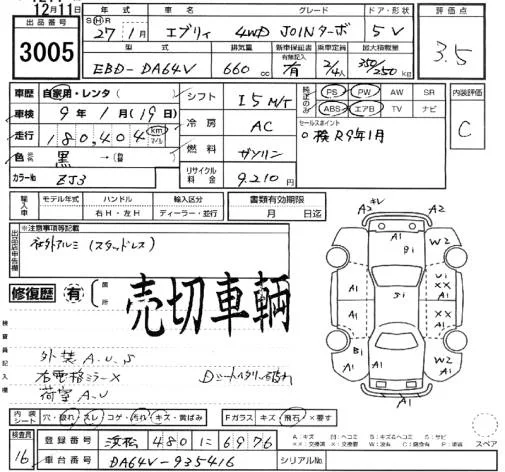 12月11日
出品番号
3005
年式 車名 グレード ドア・形状
S H R 27年1月 エブリィ 4WD JOINターボ 5V
型式 排気量 新車保証書 有無記入 乗車定員 最大積載量
EBD-DA64V 660cc 有 2/4人 350/250kg
評価点
3.5
車歴 自家用・レンタ( )
車検 9年1月(19日)
走行 180,404 km マイル
色 黒→( )
カラーNo ZJ3
シフト I5 M/T
冷房 AC
燃料 ガソリン
リサイクル料金 9,210円
純正のみ
PS PW AW SR
ABS エアB TV ナビ
セールスポイント
検R9年1月
内装評価
C
輸入車 モデル年式 ハンドル 輸入区分
年 右H・左H ディーラー・並行
書類有効期限
月 日迄
出品店申告欄
※注意事項等記載
社外アルミ(スタッドレス)
修復歴 有 箇所
売切車輌
検査員記入欄
外装A.U.S
右電格ミラーX
荷室A.U
Dシートヘタリ
A2 キレ A2
A1 W2
Bi
Ui
A1 A1 XX XX
A1
Si
B1 A1 W2
A1
A1
内装シート 穴・破れ・スレ・コゲ・汚れ・キズ・黄ばみ
Fガラス キズ・飛石・×要す
スペア
検査員 16
登録番号 浜松 480 に 6976
車台番号 DA64V-935416
シリアルNo.